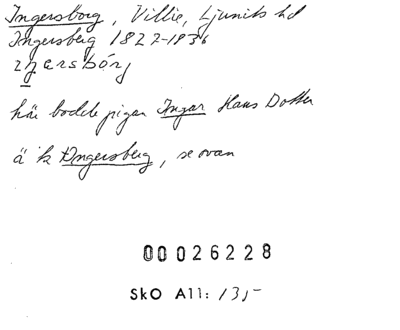 Ingersborg, Villie, Ljunits hd
Ingersberg 1827-1936
här bodde pigan Ingar Hans Dotter
ä k Ingersberg, se ovan
00026228
SkO A11: 13,-